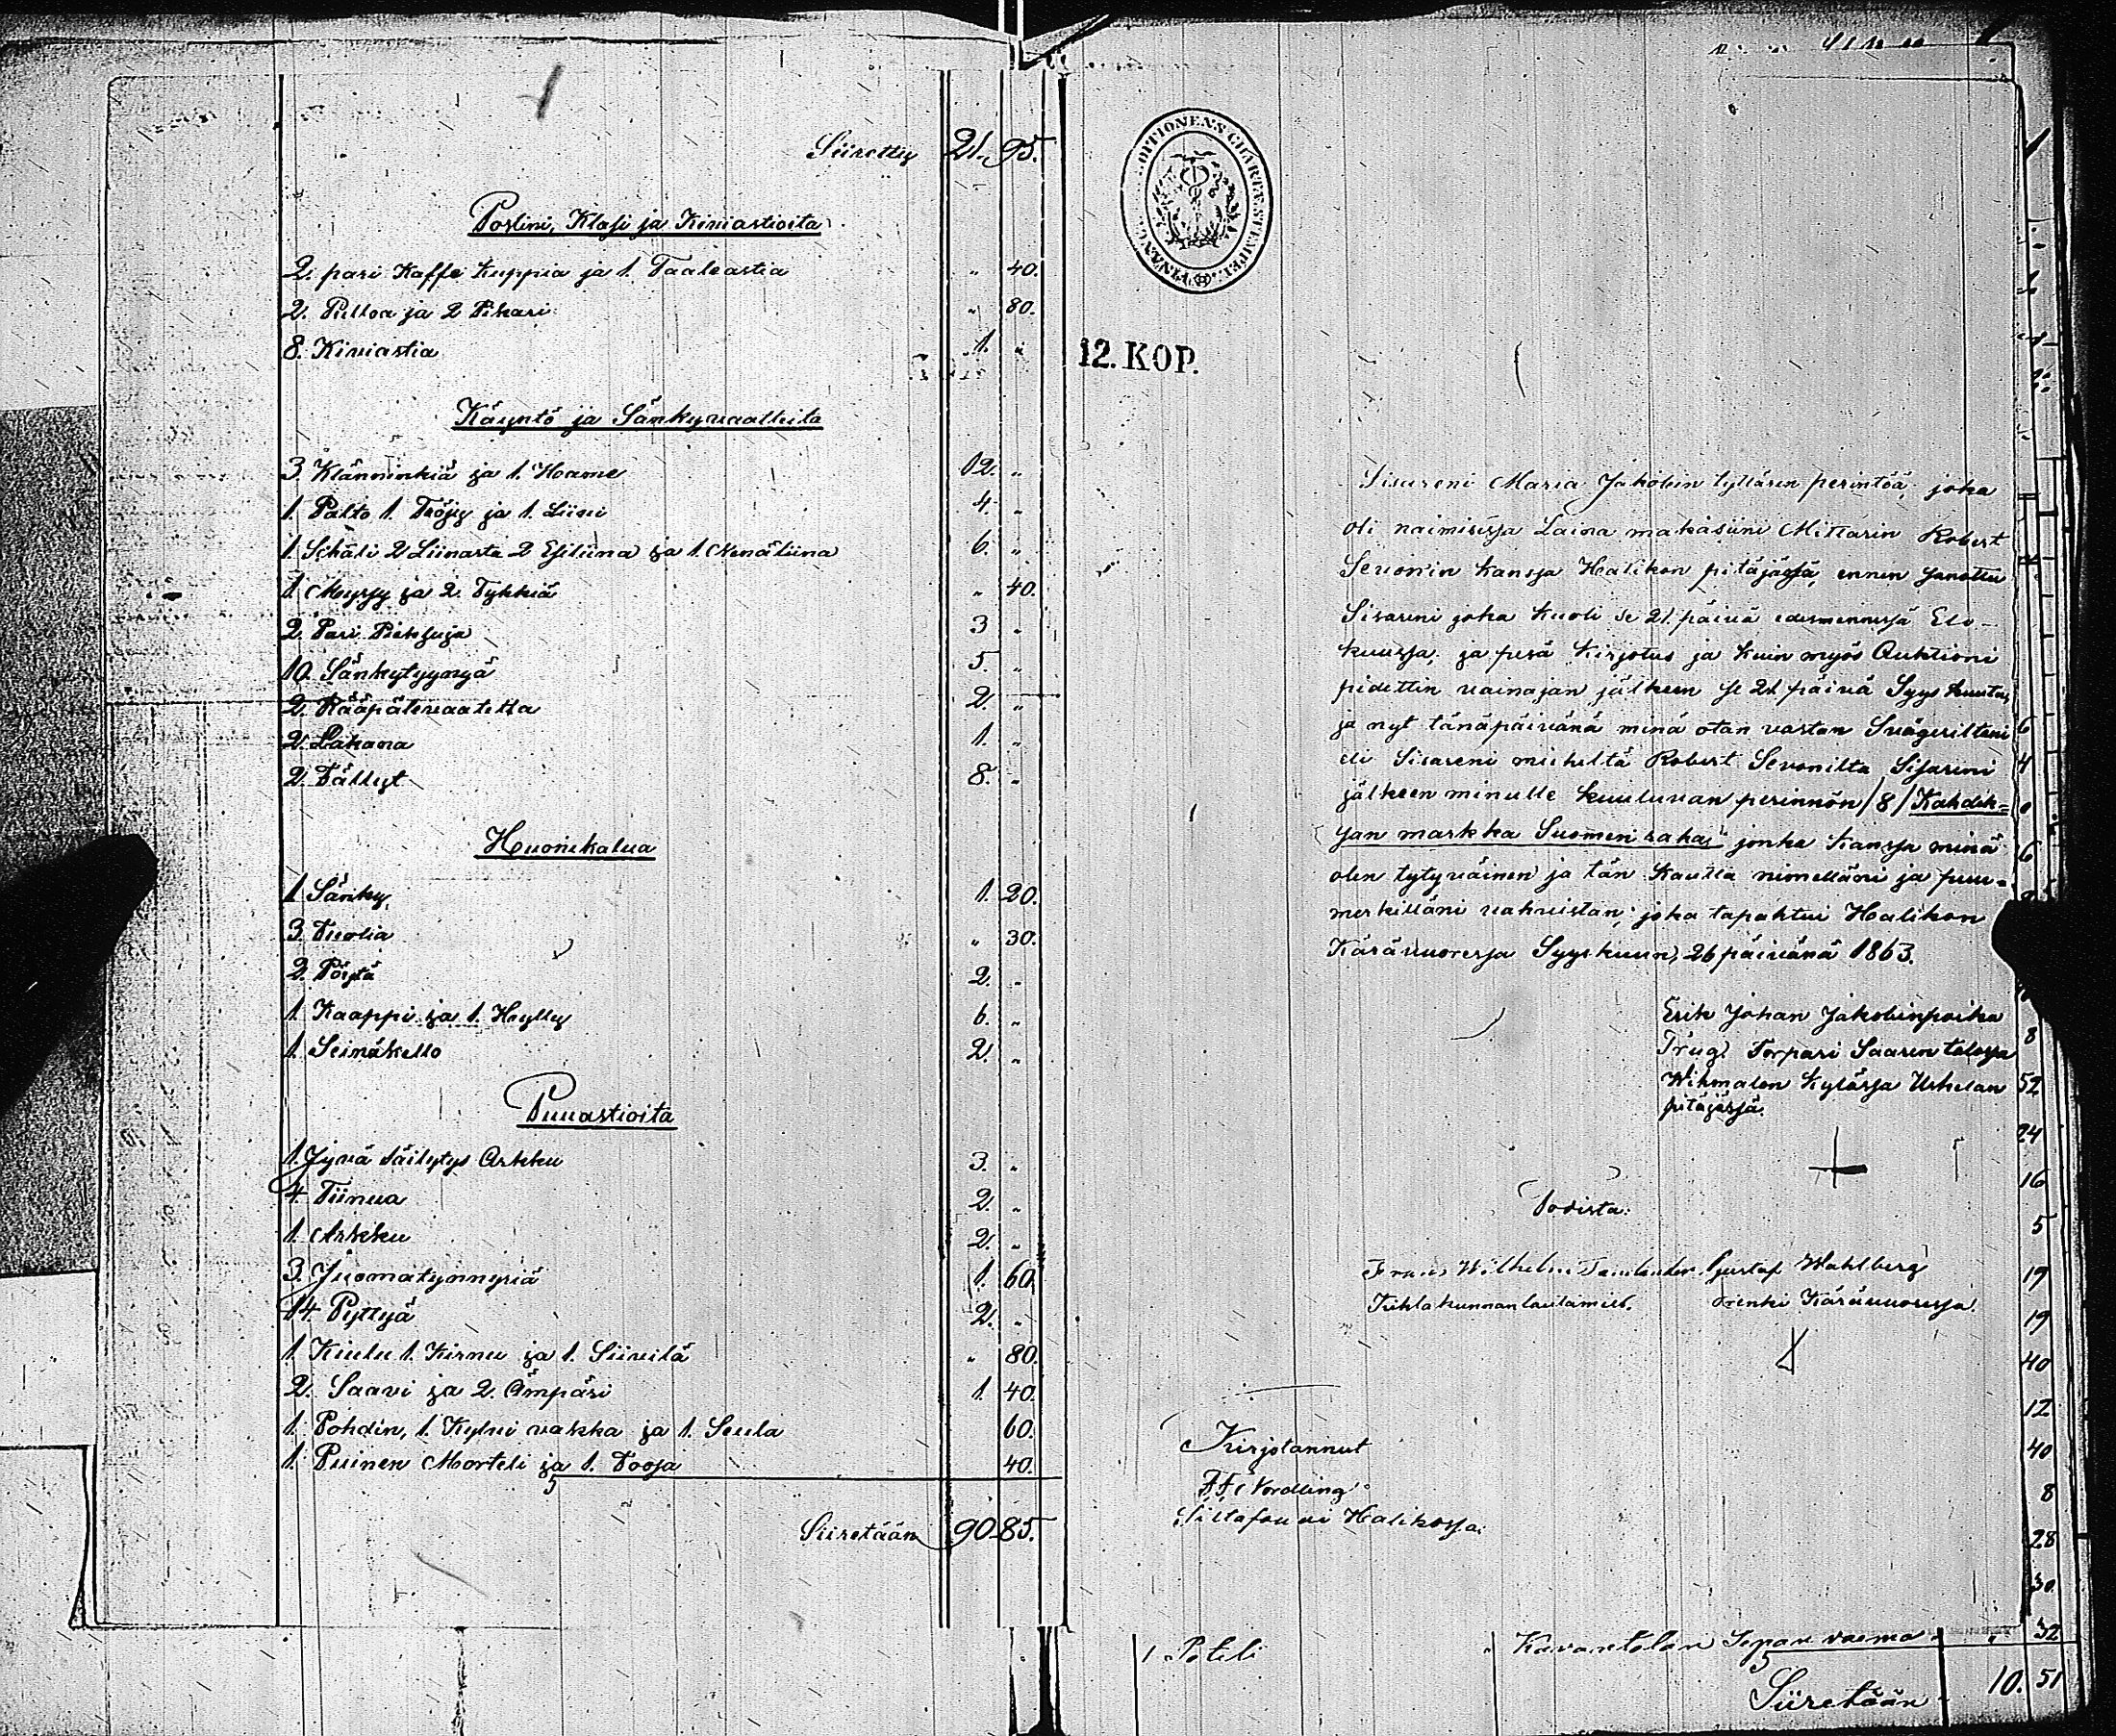 Siirettÿ 21. 95.
Poslini, Klasi ja Kiviastioita
2. pari Kaffe Kuppia ja 1. Taaleastia " 40.
2. Pulloa ja 2 Pikari " 80.
8. Kiviastia 1. "
Käyntö ja Sänkyvaatteita
3 Klänninkiä ja 1. Hame 12. "
1. Palto 1. Tröijy ja 1. Liivi 4. "
1. Schali 2 Liinasta 2 Esiliina ja 1. Nenäliina 6. "
1 Myssy ja 2. Tykkiä " 40.
2. Pari Pieksuja 3 "
10. Sänkytyynyä 5. "
2. Rääpälevaatetta 2. "
2. Lakana 1. "
2. Fällyt 8. "
Huonekalua
1 Sänky 1. 20.
3. Tuolia " 30.
2. Pöytä 2. "
1. Kaappi ja 1. Hylly 6. "
1. Seinäkello 2. "
Puuastioita
1. Jyvä säilytys Arkku 3. "
4. Tiinua 2. "
1. Arkku 2. "
3. Juomatynnyriä 1. 60.
14. Pyttyä 2. "
1. Kiulu 1. Kirnu ja 1. Siivilä " 80.
2. Saavi ja 2. Ämpäri 1. 40.
1. Pohdin, 1. Kylvi vakka ja 1. Seula 60.
1. Puinen Morteli ja 1. Toosa 40.
Siiretään 90 85.
FINANS CHARTÆ STEMPEL
12. KOP.
Sisareni Maria Jakobin tyttären perintöä, joka
oli naimisissa Laina makasiini Mittarin Robert
Sevonin kanssa Halikon pitäjässä, ennen sanottu
Sisareni joka kuoli se 21. päivä edesmennessä Elo-
kuussa; ja pesä Kirjotus ja kuin myös Auktioni
pidettin vainajan jälkeen se 21. päivä Syyskuuta,
ja nyt tänäpäivänä minä otan vastan Svägeriltäni
eli Sisareni mieheltä Robert Sevonilta Sisareni
jälkeen minulle kuuluvan perinnön /8/ Kahdek=
san markka Suomen raha" jonka kanssa minä
olen tytyväinen ja tän kautta nimelläni ja puu=
merkilläni vahvistan; joka tapahtui Halikon
Kärävuoressa Syyskuun, 26 päivänä 1863.
Erik Johan Jakobinpoika
Torpari Saaren talossa
Kylässä Uskelan
pitäjässä.
Todista:
Frans Wilhelm Gustaf Wahlberg
Kihlakunnan lautamies. Renki Kärävuoressa.
Kirjotannut
F. F. Nordling
Halikossa.
6
4
6
8
52
24
16
5
19
19
40
12
40
8
28
30
1 Poteli " Kavantolan Sepan vaimo " 32
Siiretään 10. 51